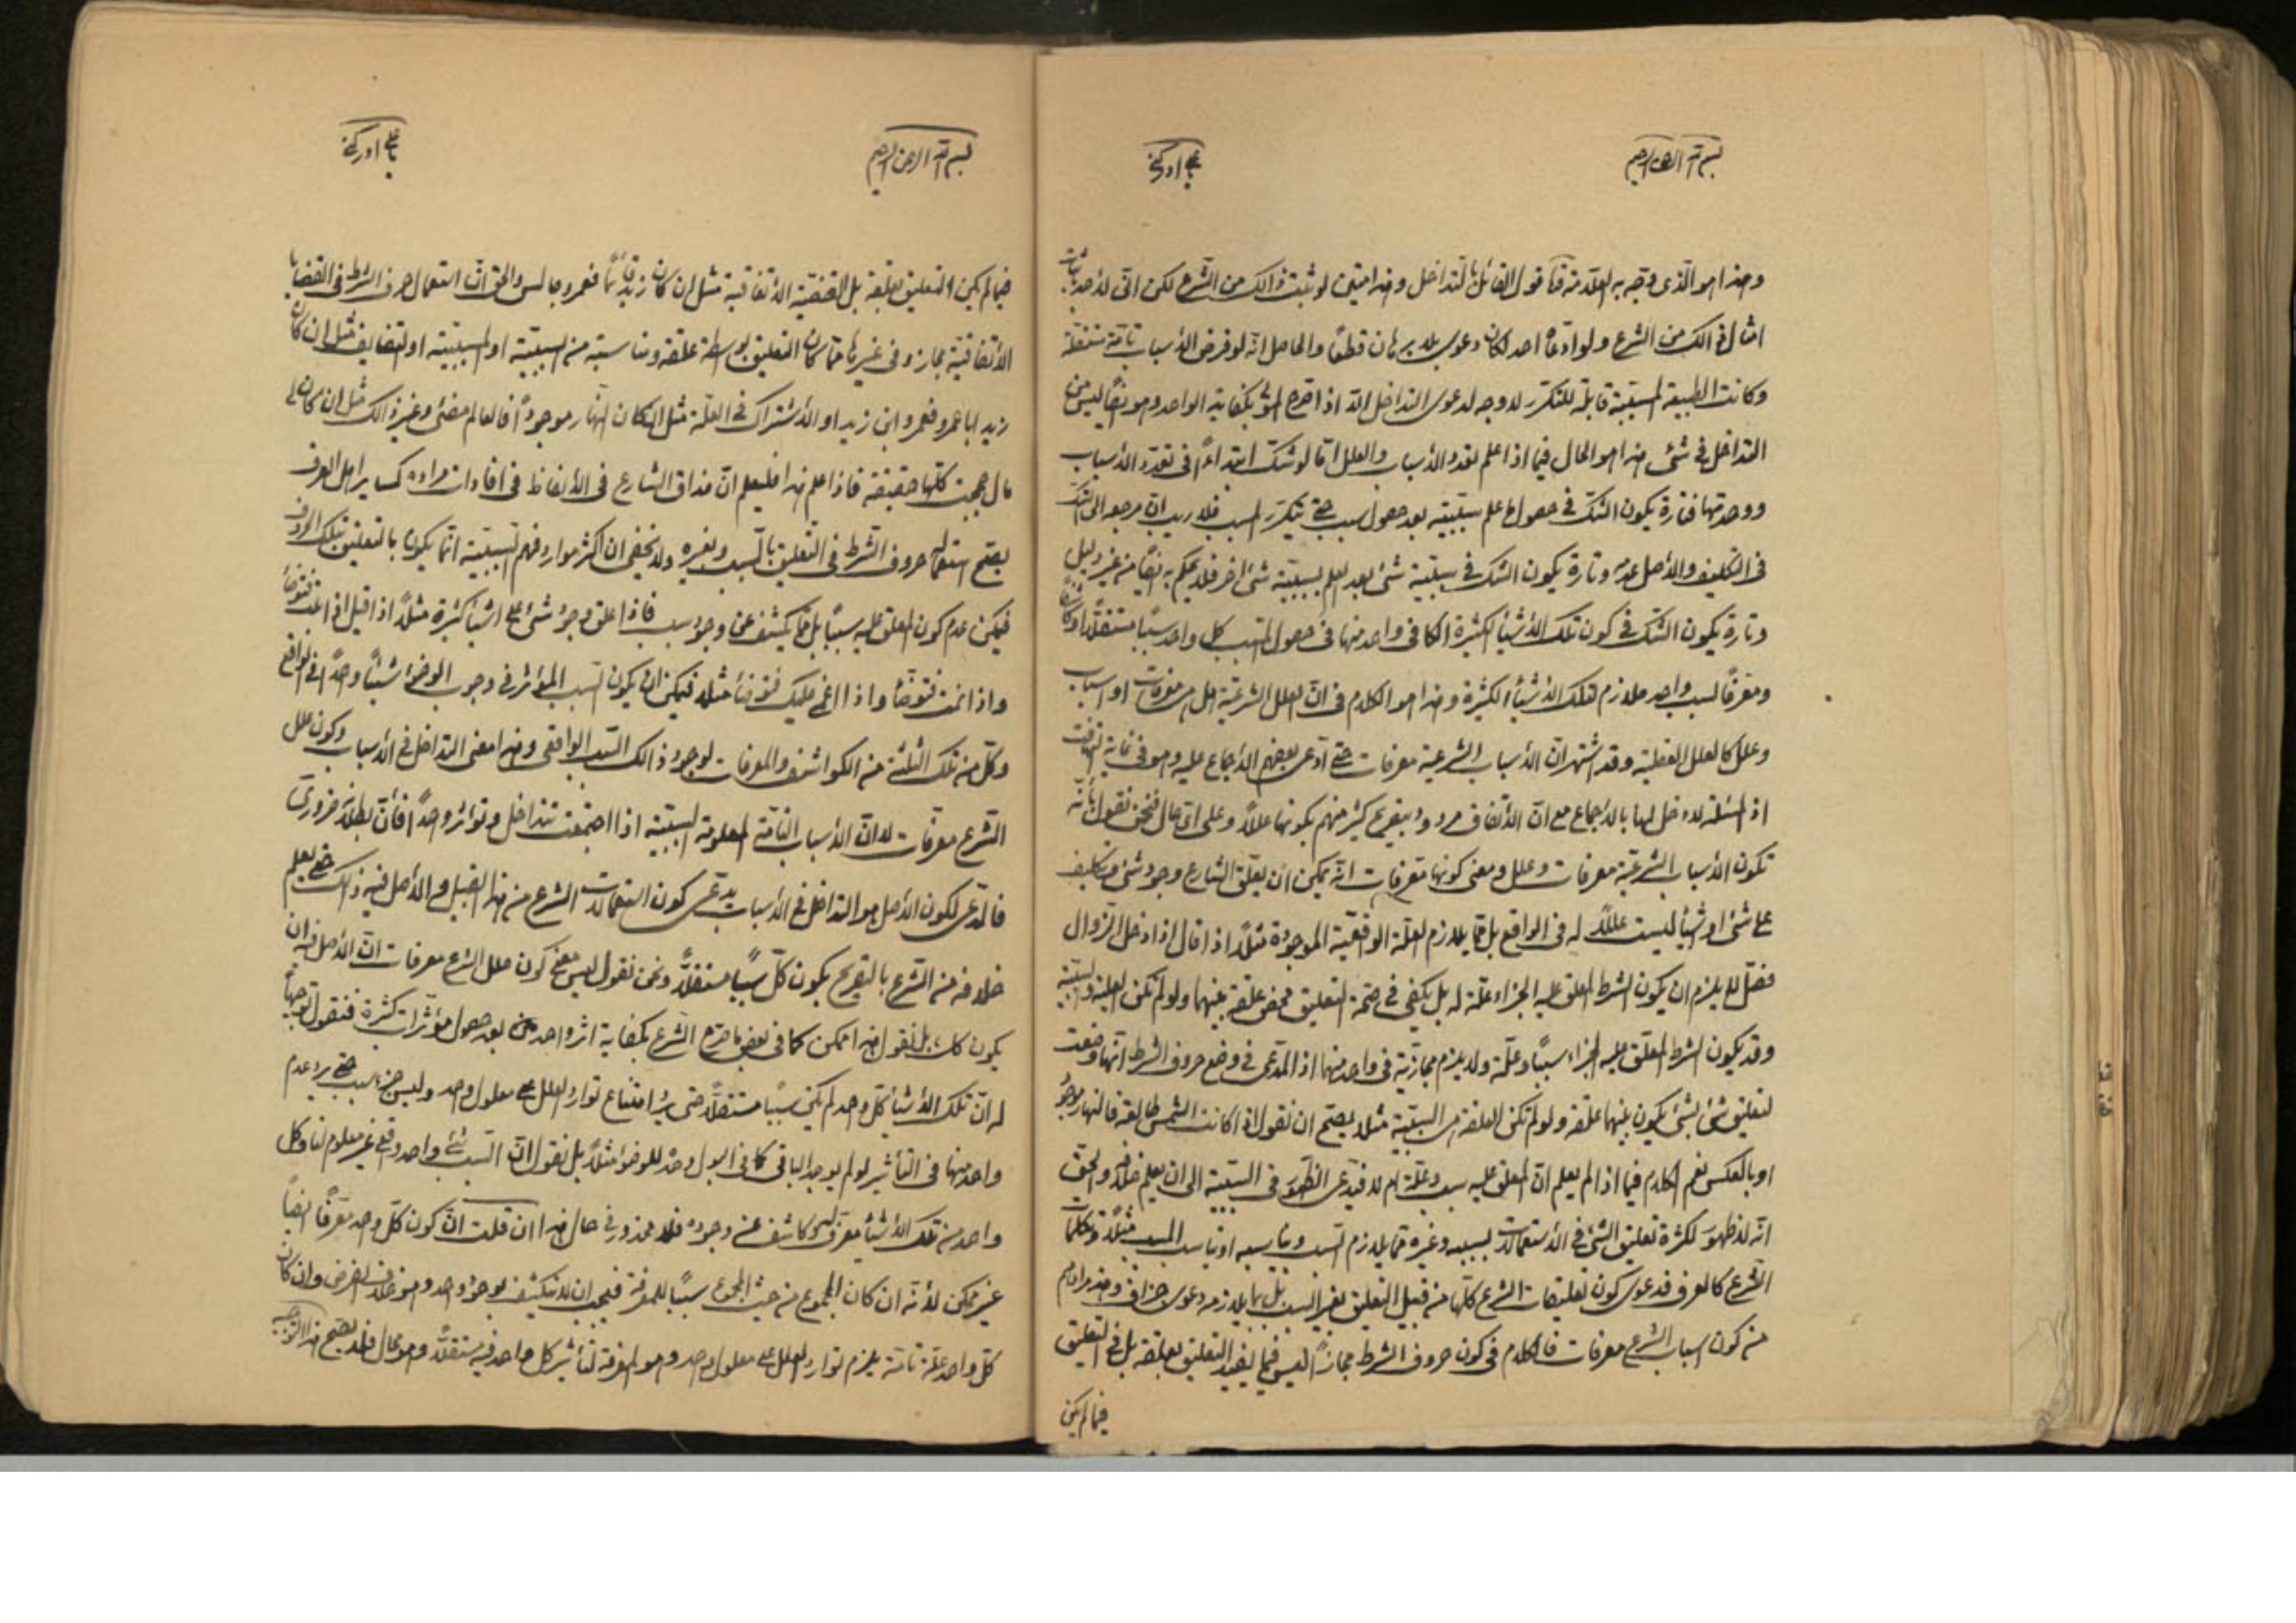 بسم الله الرحمن الرحيم
يا علي ادركني
وهذا هو الذي وجه به العلامة قول القائل بالتداخل وهذا متين لو ثبت ذلك من الشرع لكن انى لاحد باثبات
امثال ذلك من الشرع ولو ادعاه احد لكان دعوى بلا برهان قطعًا والحاصل انه لو فرض الاسباب تامة مستقلة
وكانت الطبيعة المسببة قابلة للتكرر لا وجه لدعوى التداخل الا اذا صرح المولى بكفاية الواحد وهو ايضًا ليس من
التداخل في شئ هذا هو الحال فيما اذا علم تعدد الاسباب والعلل اما لو شك ابتداءً في تعدد الاسباب
ووحدتها فتارة يكون الشك في حصول ما علم سببيته بعد حصول سبب حتى يتكرر المسبب فلا ريب ان مرجعه الى الشك
في التكليف والاصل عدمه وتارة يكون الشك في سببية شئ بعد العلم بسببية شئ اخر فلا يحكم به ايضًا من غير دليل
وتارة يكون الشك في كون تلك الاشياء الكثيرة الكافي واحد منها في حصول المسبب كل واحد سببًا مستقلًا او كاشفًا
ومعرفًا لسبب واحد ملازم لتلك الاشياء الكثيرة وهذا هو الكلام في ان العلل الشرعية هل هي معرفات او اسباب
وعلل كالعلل العقلية وقد اشتهر ان الاسباب الشرعية معرفات حتى ادعى بعضهم الاجماع عليه وهو في غاية التهافت
اذ المسئلة لا دخل لها بالاجماع مع ان الاتفاق مردود بتصريح كثير منهم بكونها عللًا وعلى اي حال فنحن نقول بانه
تكون الاسباب الشرعية معرفات وعلل ومعنى كونها معرفات انه يمكن ان يعلق الشارع وجود شئ وتكليف
على شئ او اشياء ليست عللًا له في الواقع بل مما يلازم العلة الواقعية الموجودة مثلًا اذا قال اذا دخل الزوال
فصل لا يلزم ان يكون الشرط المعلق عليه الجزاء علة له بل يكفي في صحة التعليق محض علقة بينهما ولو لم تكن العلية والسببية
وقد يكون الشرط المعلق عليه الجزاء سببًا وعلة ولا يلزم مجازية في واحد منهما اذ المدعى في وضع حروف الشرط انها وضعت
لتعليق شئ بشئ يكون بينهما علقة ولو لم تكن العلقة هي السببية مثلا يصح ان نقول اذا كانت الشمس طالعة فالنهار موجود
او بالعكس نعم الكلام فيما اذا لم يعلم ان المعلق عليه سبب وعلة ام لا فيدعى الظهور في السببية الى ان يعلم خلافه والحق
انه لا ظهور لكثرة تعليق الشئ في الاستعمالات لسببه وغيره مما يلازم السبب ويناسبه او يناسب المسبب مثلًا وكلمات
الشرع كالعرف فدعوى كون تعليقات الشرع كلها من قبيل التعليق بغير السبب بل بما يلازمه دعوى جزاف وهذا مرادهم
من كون اسباب الشرع معرفات فالكلام في كون حروف الشرط مجازًا ليس فيما يفيد التعليق بعلقة بل في التعليق
فيما لم يكن
بسم الله الرحمن الرحيم
يا علي ادركني
فيما لم يكن التعليق بعلقة بل القضية الاتفاقية مثل ان كان زيد قائمًا فعمرو جالس والحق ان استعمال حرف الشرط في القضايا
الاتفاقية مجاز وفي غيرها مما كان التعليق بواسطة علقة ومناسبة من السببية او المسببية او التضايف مثل ان كان
زيد ابا عمرو فعمرو ابن زيد او الاشتراك في العلة مثل ان كان النهار موجودًا فالعالم مضئ وغير ذلك مثل ان كان لي
مال حججت كلها حقيقة فاذا علم هذا فليعلم ان مذاق الشارع في الالفاظ في افادات مراده كساير اهل العرف
يصح استعماله حروف الشرط في التعليق بالسبب وبغيره ولا يخفى ان اكثر موارد فهم السببية انما يكون بالتعليق بتلك الحروف
فيمكن عدم كون المعلق عليه سببًا بل مما يكشف عن وجود سبب فاذا علق وجود شئ على اشياء كثيرة مثلًا اذا قيل اذا بلت فتوضأ
واذا نمت فتوضأ واذا اغمي عليك فتوضأ مثلا فيمكن ان يكون السبب المؤثر في وجوب الوضوء شيئًا واحدًا في الواقع
وكل من تلك الثلثة من الكواشف والمعرفات لوجود ذلك السبب الواقعي وهذا معنى التداخل في الاسباب وكون علل
الشرع معرفات لا ان الاسباب التامة المعلومة السببية اذا اجتمعت تتداخل وتؤثر واحدًا فان بطلانه ضروري
فالمدعي لكون الاصل هو التداخل في الاسباب يدعي كون استعمالات الشرع من هذا القبيل والاصل فيه ذلك حتى يعلم
خلافه من الشرع بالتصريح بكون كل سببًا مستقلًا ونحن نقول ليس معنى كون علل الشرع معرفات ان الاصل فيه ان
يكون كذلك بل نقول هذا ممكن كما في بعض ما صرح الشرع بكفاية اثر واحد بعد حصول مؤثرات كثيرة فنقول توجيهًا
له ان تلك الاشياء كل واحد لم يكن سببًا مستقلًا حتى يرد امتناع توارد العلل على معلول واحد وليس جزء سبب حتى يرد عدم
واحد منها في التأثير لو لم يوجد الباقي كما في البول وحده للوضوء مثلًا بل نقول ان السبب شئ واحد واقعي غير معلوم لنا وكل
واحد من تلك الاشياء معرف وكاشف عن وجوده فلا محذور في حال هذا ان قلت ان كون كل واحد معرفًا ايضًا
غير ممكن لانه ان كان المجموع من حيث المجموع سببًا للمعرفة فيجب ان لا ينكشف بوجود واحد وهو خلاف الفرض وان كان
كل واحد علة تامة يلزم توارد العلل على معلول واحد وهو المعرفة لتأثير كل واحد فيه مستقلًا وهو محال فلا يصح هذا التوجيه